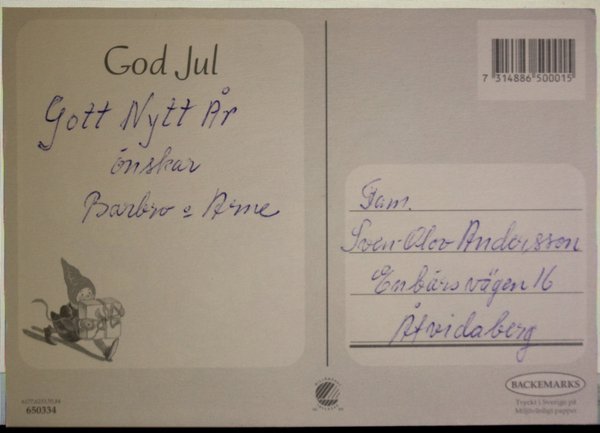 God Jul
Gott Nytt År
önskar
Barbro & Arne
7 314886 500015
Fam.
Sven-Olov Andersson
Enbärsvägen 16
Åtvidaberg
650334
BACKEMARKS
Tryckt i Sverige på
Miljövänligt papper